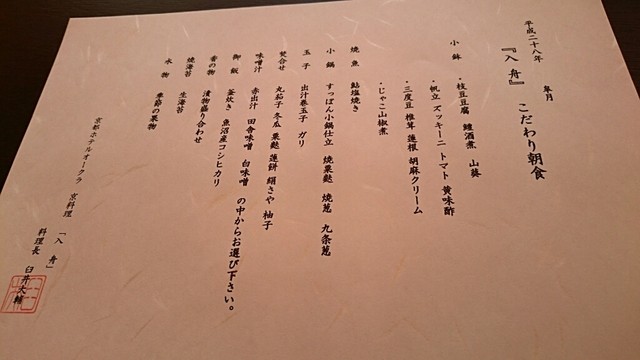 平成二十八年 皐月
『入舟』 こだわり朝食
小鉢 ・枝豆豆腐 鱧酒煮 山葵
・帆立 ズッキーニ トマト 黄味酢
・三度豆 椎茸 蓮根 胡麻クリーム
・じゃこ山椒煮
焼魚 鮎塩焼き
小鍋 すっぽん小鍋仕立 焼粟麩 焼葱 九条葱
玉子 出汁巻玉子 ガリ
焚合せ 丸茄子 冬瓜 粟麩 蓮餅 絹さや 柚子
味噌汁 赤出汁 田舎味噌 白味噌 の中からお選び下さい。
御飯 釜炊き 魚沼産コシヒカリ
香の物 漬物盛り合わせ
焼海苔 生海苔
水物 季節の果物
京都ホテルオークラ 京料理 「入舟」
料理長 臼井大輔